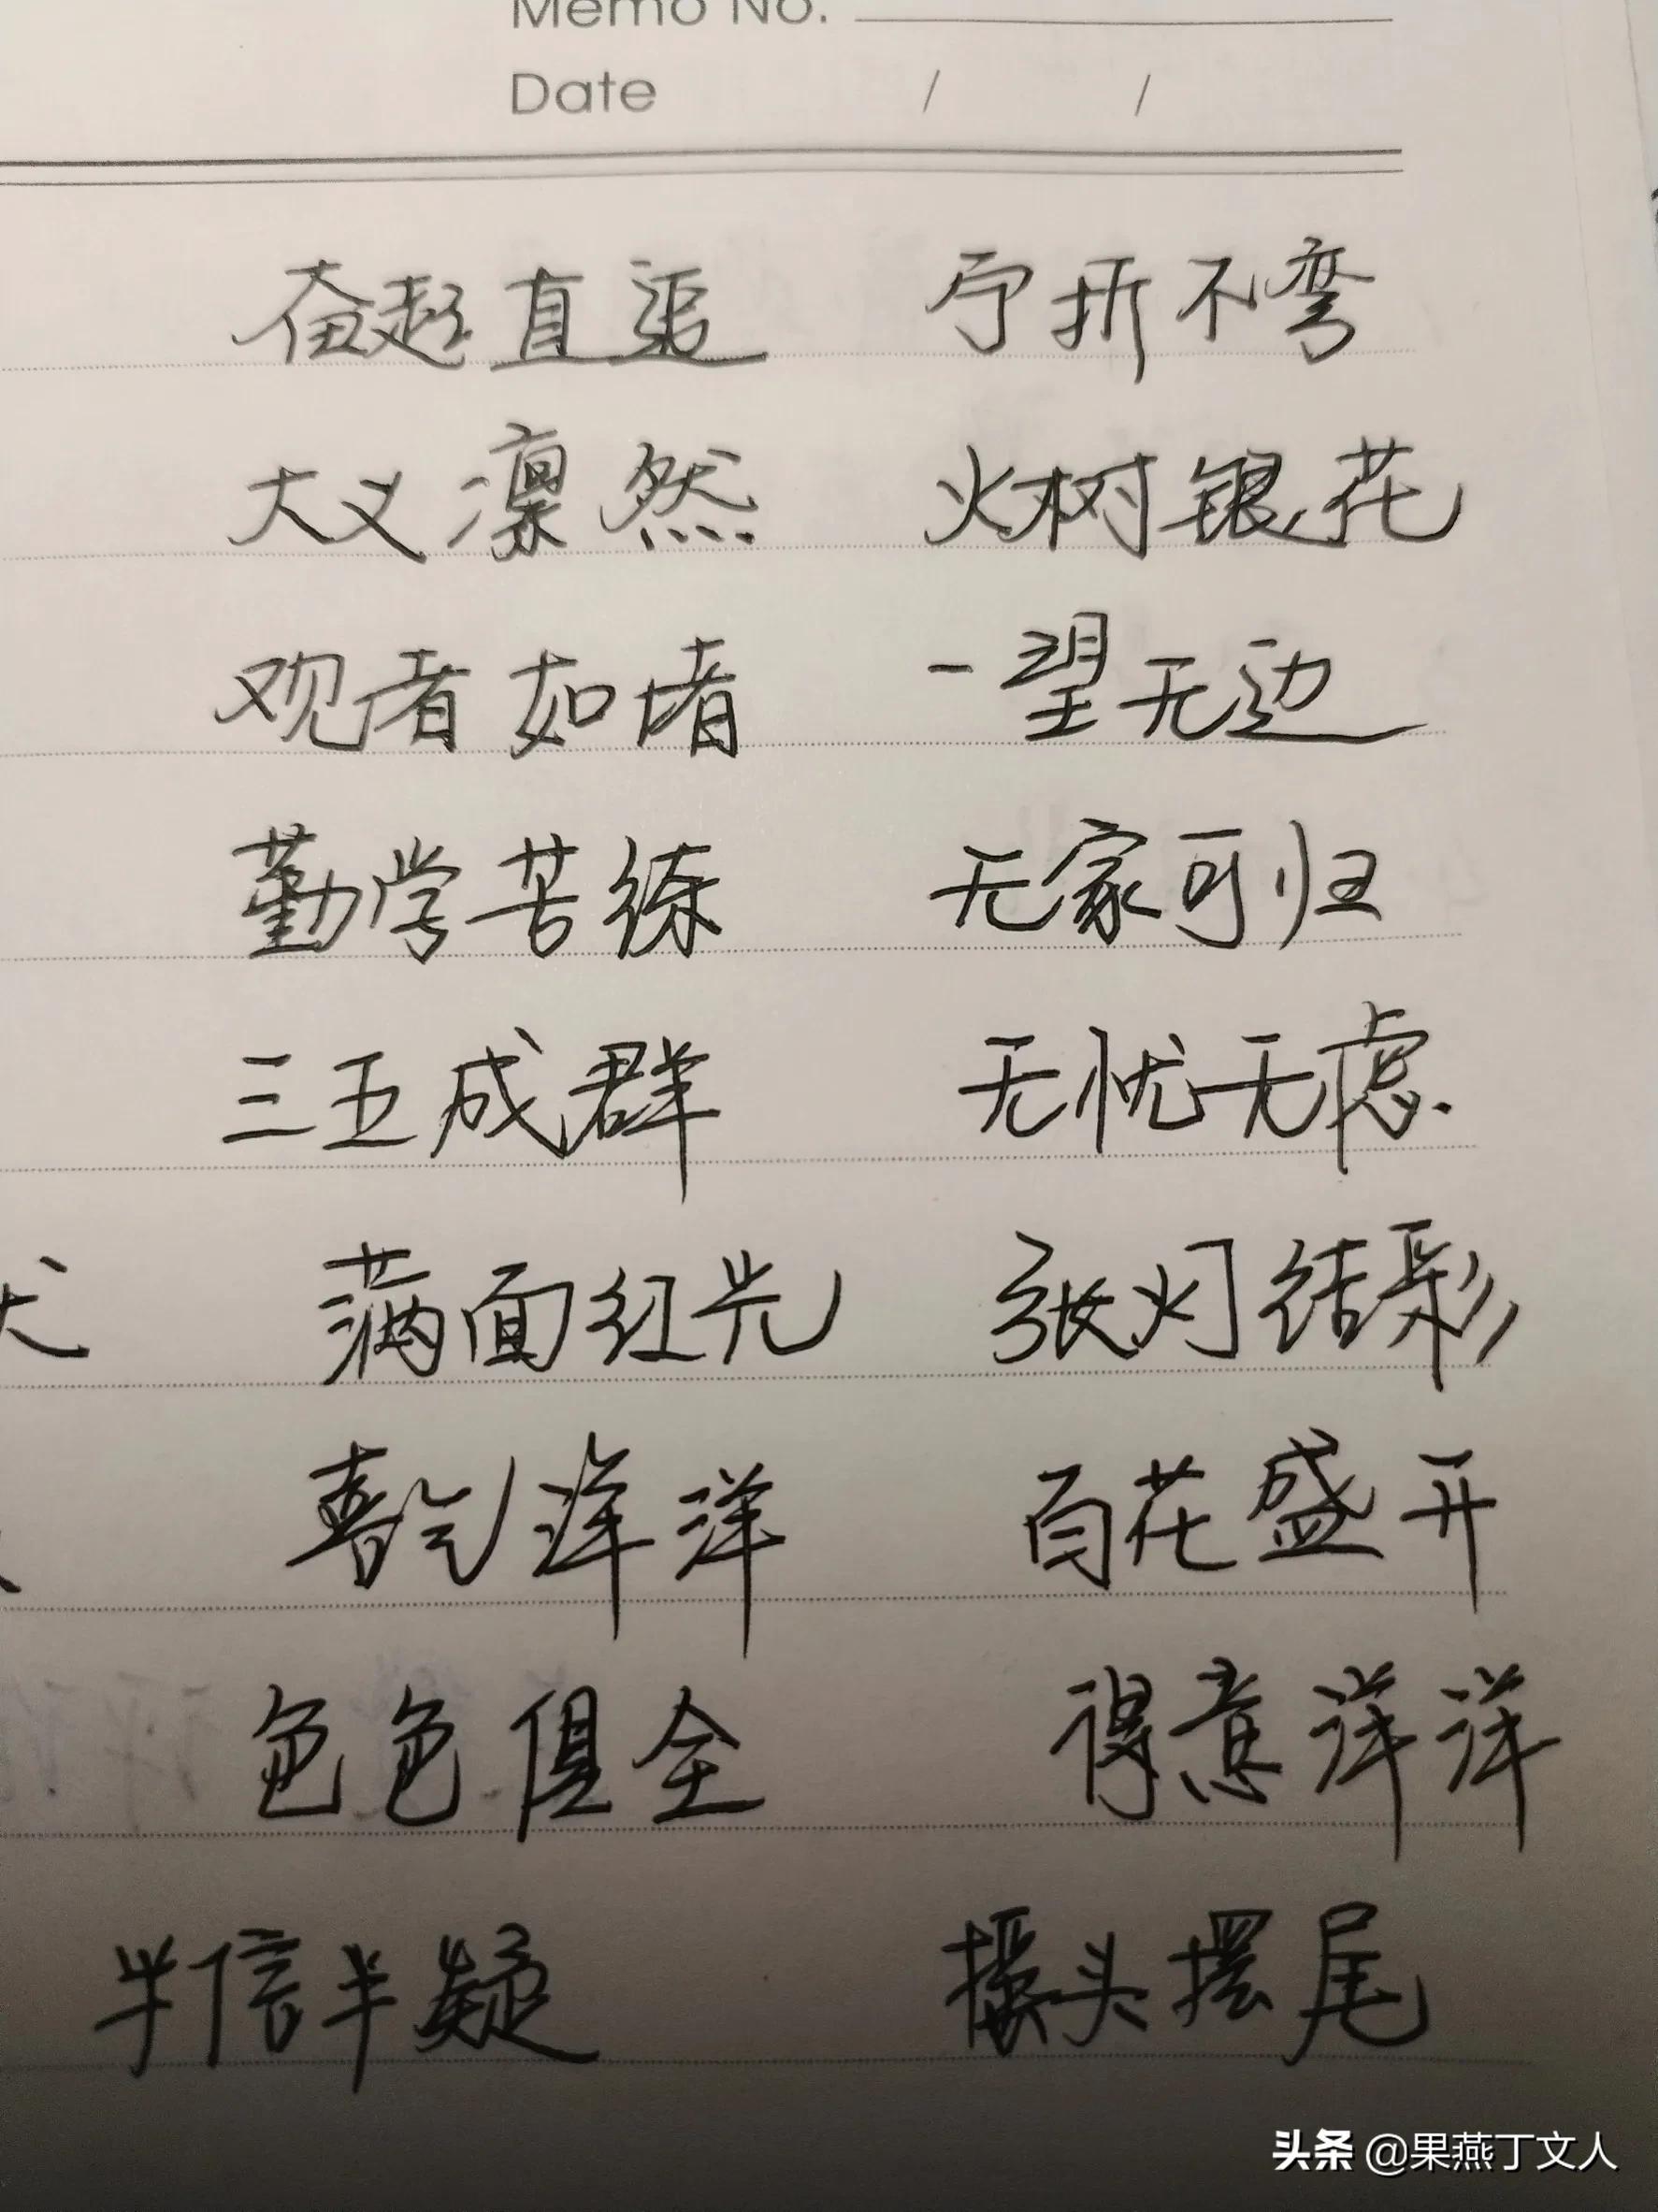 Memo No.
Date / /
奋起直追 宁折不弯
大义凛然 火树银花
观者如堵 一望无边
勤学苦练 无家可归
三五成群 无忧无虑
满面红光 张灯结彩
喜气洋洋 百花盛开
色色俱全 得意洋洋
半信半疑 摇头摆尾
头条 @果燕丁文人